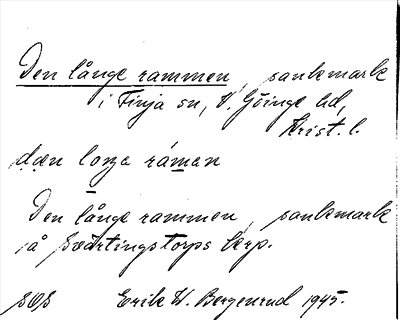 Den långe rammen, sankmark
i Finja sn, V. Göinge hd,
Krist. l.
dæn loŋa ráman
Den långe rammen, sankmark
å Svärtingstorps
Erik W. Bergenrud 1945.